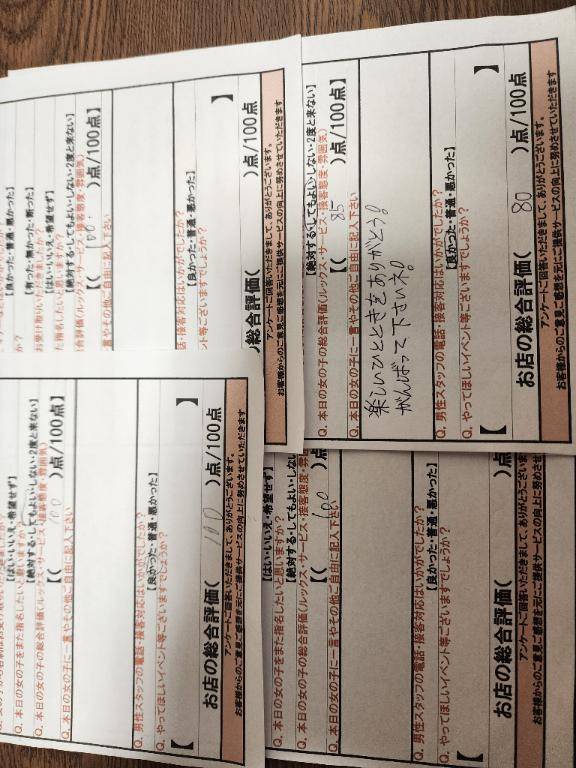 【良かった・普通・悪かった】
【有った・無かった・断った】
お受け取りいただきましたか?
【はい・いいえ・希望せず】
た指名したいと思いますか?
【絶対する・してもよい・しない・2度と来ない】
合評価(ルックス・サービス・接客態度・雰囲気)
【( 100 )点/100点】
言やその他ご自由に記入下さい
話・接客対応はいかがでしたか?
【良かった・普通・悪かった】
ント等ございますでしょうか?
】
総合評価( )点/100点
アンケートに回答いただきまして、ありがとうございます。
お客様からのご意見ご感想を元にご提供サービスの向上に努めさせていただきます
【絶対する・してもよい・しない・2度と来ない】
Q. 本日の女の子の総合評価(ルックス・サービス・接客態度・雰囲気)
【( 85 )点/100点】
Q. 本日の女の子に一言やその他ご自由に記入下さい
楽しいひとときをありがとう!
がんばって下さいネ!
Q. 男性スタッフの電話・接客対応はいかがでしたか?
【良かった・普通・悪かった】
Q. やってほしいイベント等ございますでしょうか?
【 】
お店の総合評価( 80 )点/100点
アンケートに回答いただきまして、ありがとうございます。
お客様からのご意見ご感想を元にご提供サービスの向上に努めさせていただきます
【はい・いいえ・希望せず】
Q. 本日の女の子をまた指名したいと思いますか?
【絶対する・してもよい・しない・2度と来ない】
Q. 本日の女の子の総合評価(ルックス・サービス・接客態度・雰囲気)
【( 100 )点/100点】
Q. 本日の女の子に一言やその他ご自由に記入下さい
Q. 男性スタッフの電話・接客対応はいかがでしたか?
【良かった・普通・悪かった】
Q. やってほしいイベント等ございますでしょうか?
【 】
お店の総合評価( 100 )点/100点
アンケートに回答いただきまして、ありがとうございます。
お客様からのご意見ご感想を元にご提供サービスの向上に努めさせていただきます
【はい・いいえ・希望せず】
Q. 本日の女の子をまた指名したいと思いますか?
【絶対する・してもよい・しな
Q. 本日の女の子の総合評価(ルックス・サービス・接客態度・雰
【( 100 )点
Q. 本日の女の子に一言やその他ご自由に記入下さい
Q. 男性スタッフの電話・接客対応はいかがでしたか?
【良かった・普通・悪かった】
Q. やってほしいイベント等ございますでしょうか?
【
お店の総合評価( )点
アンケートに回答いただきまして、ありがとうございま
お客様からのご意見ご感想を元にご提供サービスの向上に努めさせ